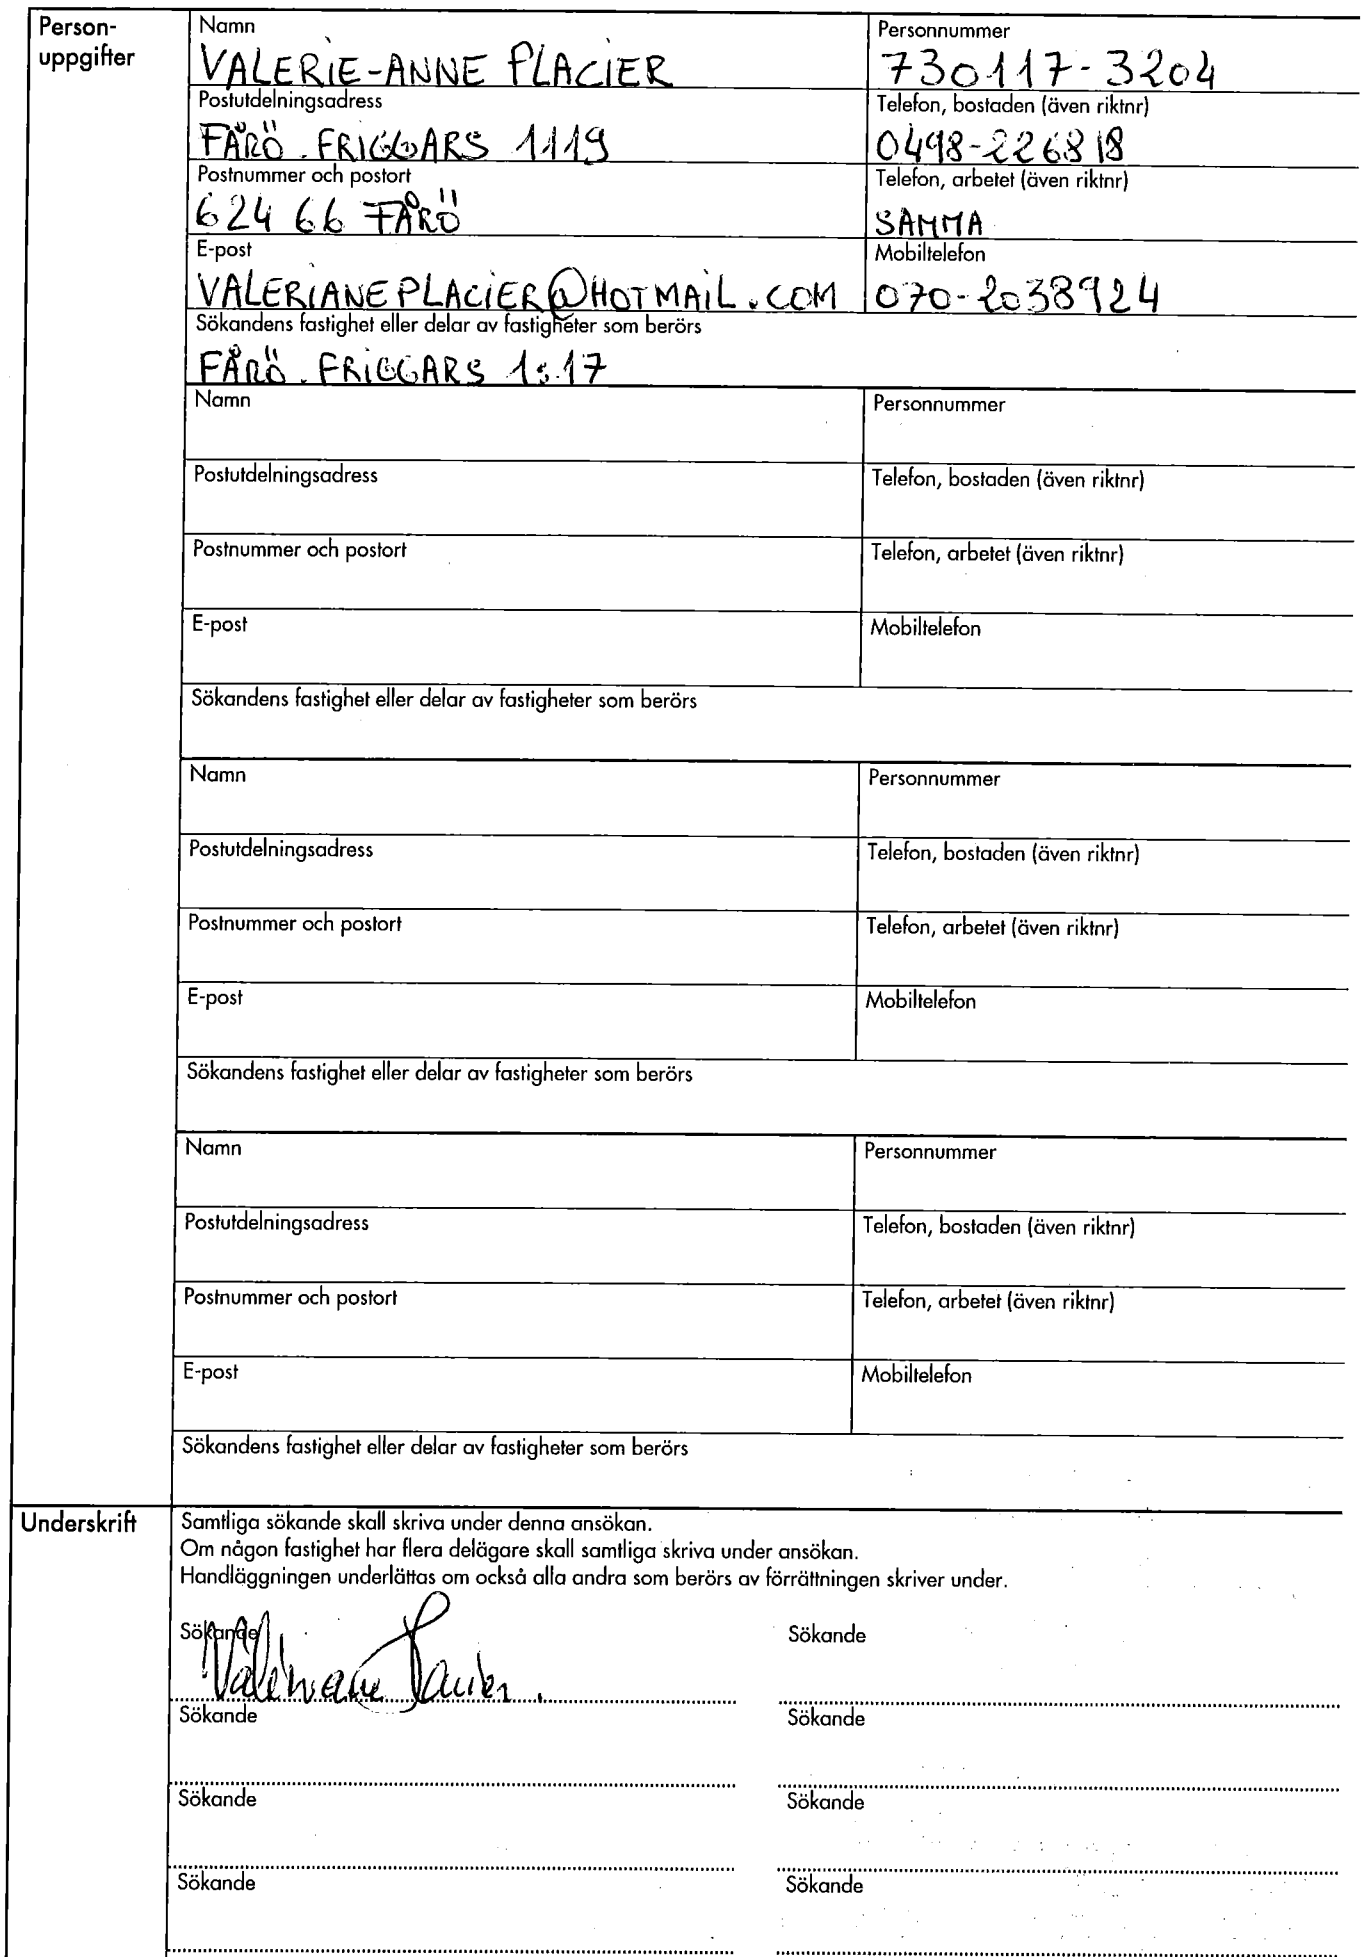 Person-
uppgifter
Namn
VALERIE-ANNE PLACIER
Personnummer
730117-3204
Postutdelningsadress
FÅRÖ. FRIGGARS 1119
Telefon, bostaden (även riktnr)
0498-226818
Postnummer och postort
624 66 FÅRÖ
Telefon, arbetet (även riktnr)
SAMMA
E-post
VALERIANEPLACIER@HOTMAIL.COM
Mobiltelefon
070-2038924
Sökandens fastighet eller delar av fastigheter som berörs
FÅRÖ. FRIGGARS 1:17
Namn
Personnummer
Postutdelningsadress
Telefon, bostaden (även riktnr)
Postnummer och postort
Telefon, arbetet (även riktnr)
E-post
Mobiltelefon
Sökandens fastighet eller delar av fastigheter som berörs
Namn
Personnummer
Postutdelningsadress
Telefon, bostaden (även riktnr)
Postnummer och postort
Telefon, arbetet (även riktnr)
E-post
Mobiltelefon
Sökandens fastighet eller delar av fastigheter som berörs
Namn
Personnummer
Postutdelningsadress
Telefon, bostaden (även riktnr)
Postnummer och postort
Telefon, arbetet (även riktnr)
E-post
Mobiltelefon
Sökandens fastighet eller delar av fastigheter som berörs
Underskrift
Samtliga sökande skall skriva under denna ansökan.
Om någon fastighet har flera delägare skall samtliga skriva under ansökan.
Handläggningen underlättas om också alla andra som berörs av förrättningen skriver under.
Sökande
Sökande
Sökande
Sökande
Sökande
Sökande
Sökande
Sökande